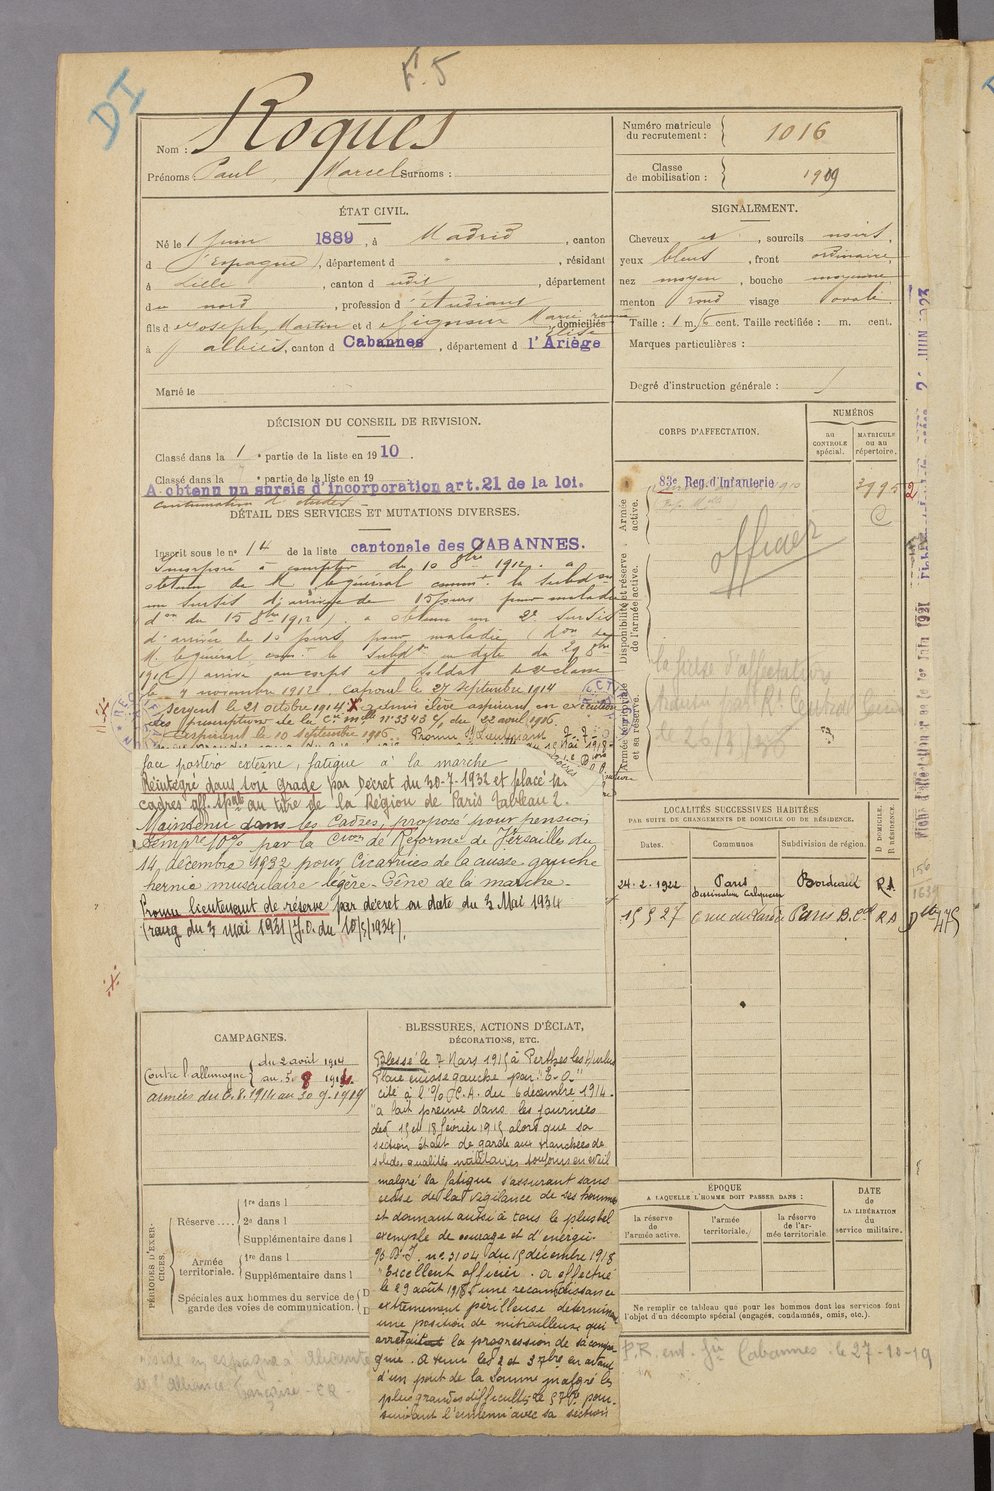 F. 5
DI
Nom : Roques
Prénoms : Paul Marcel Surnoms :
Numéro matricule du recrutement : 1016
Classe de mobilisation : 1909
ÉTAT CIVIL.
Né le 1 Juin 1889, à Madrid, canton
d Espagne, département d , résidant
à Lille, canton d udit, département
du nord, profession d'Etudiant
fils de Joseph, Martin et de Marie domiciliés
à albiès, canton d Cabannes, département d l'Ariège
Marié le
SIGNALEMENT.
Cheveux et, sourcils noirs,
yeux bleus, front ordinaire,
nez moyen, bouche moyenne
menton rond visage ovale.
Taille : 1 m. cent. Taille rectifiée : m. cent.
Marques particulières :
Degré d'instruction générale :
DÉCISION DU CONSEIL DE REVISION.
Classé dans la 1 e partie de la liste en 1910.
Classé dans la e partie de la liste en 19
A obtenu un sursis d'incorporation art. 21 de la loi.
continuation d'études
DÉTAIL DES SERVICES ET MUTATIONS DIVERSES.
Inscrit sous le n° 14 de la liste cantonale des CABANNES.
Incorporé à compter du 10 8bre 1912. a
obtenu de M. le général comm.t la subd.on
un sursis d'arrivée de 15 jours pour maladie
d.on du 15 8bre 1912). a obtenu un 2e sursis
d'arrivée de 10 jours pour maladie (d.on de
M. le général com.t la subd.on en date du 29 8bre
1912) arrivé au corps et soldat de 2e classe
le 4 novembre 1912. Caporal le 27 Septembre 1914
Sergent le 21 octobre 1914. X admis élève aspirant en exécution
des prescriptions de la C.re m.lle n° 3343 du 22 avril 1916.
Aspirant le 10 septembre 1916. Promu S/Lieutenant
face postéro externe, fatigue à la marche
Réintégré dans son grade par Décret du 30-7-1932 et placé
cadres au titre de la Région de Paris Tableau 2.
Maintenu dans les Cadres, proposé pour pension
temp.re 10% par la C.ion de Réforme de Versailles du
14 décembre 1932 pour Cicatrices de la cuisse gauche
hernie musculaire légère - Gêne de la marche.
Promu lieutenant de réserve par décret en date du 3 Mai 1934
(rang du 3 mai 1931 (J.O. du 10/5/1934).
CORPS D'AFFECTATION.
NUMÉROS
au CONTROLE spécial.
MATRICULE ou au répertoire.
Armée active.
83e Reg. d'Infanterie
officier
Disponibilité et réserve de l'armée active.
la fiche d'affectation
Armée territoriale et sa réserve.
LOCALITÉS SUCCESSIVES HABITÉES
PAR SUITE DE CHANGEMENTS DE DOMICILE OU DE RÉSIDENCE.
Dates. Communes Subdivision de région. D DOMICILE. R RÉSIDENCE.
24-2-1922 Paris Bordeaux RA
15 5 27 Paris B.C.al RA
CAMPAGNES.
Contre l'allemagne { du 2 août 1914
armées du
BLESSURES, ACTIONS D'ÉCLAT,
DÉCORATIONS, ETC.
Blessé le 7 Mars 1915 à Perthes les Hurlus
Plaie cuisse gauche par "E.O."
cité à l'O/ C.A. du 6 décembre 1914.
"a fait preuve dans les journées
des 15 et 18 février 1915 alors que sa
section était de garde aux tranchées de
solides qualités militaires toujours en éveil
malgré la fatigue s'assurant sans
cesse de la vigilance de ses hommes
et donnant aussi à tous le plus bel
exemple de courage et d'énergie.
O/ D.I. n° 3104 du 15 décembre 1918
"Excellent officier. a effectué
le 29 août 1918 une reconnaissance
extrêmement périlleuse déterminant
une position de mitrailleuse qui
arrêtait la progression de sa compa-
gnie. A tenu les 2 et 3 7bre en avant
d'un pont de la Somme malgré les
plus grandes difficultés, le 5 7bre pour-
suivant l'ennemi avec sa section
PÉRIODES D'EXERCICES.
Réserve.... 1re dans l
2e dans l
Supplémentaire dans l
Armée territoriale. 1re dans l
Supplémentaire dans l
Spéciales aux hommes du service de garde des voies de communication.
ÉPOQUE
A LAQUELLE L'HOMME DOIT PASSER DANS :
la réserve de l'armée active.
l'armée territoriale.
la réserve de l'armée territoriale.
DATE de LA LIBÉRATION du service militaire.
Ne remplir ce tableau que pour les hommes dont les services font
l'objet d'un décompte spécial (engagés, condamnés, omis, etc.).
P.R. env. Cabannes le 27-10-19
réside en Espagne à Alicante